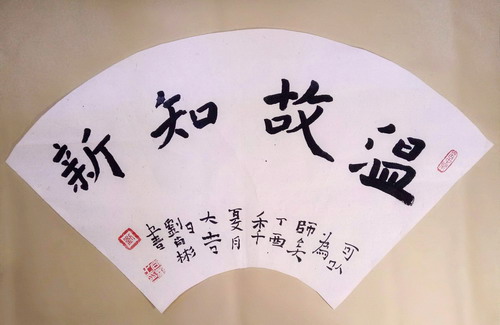 温故知新
可以
為
師矣
丁酉
年
夏月
大吉
日
劉彬
書